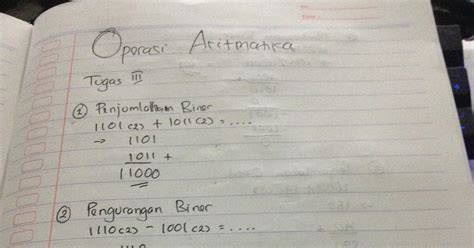 Operasi Aritmatika
Tugas III
① Penjumlahan Biner
1101(2) + 1011(2) = ....
→ 1101
1011 +
11000
② Pengurangan Biner
1110(2) - 1001(2) = ....
1110